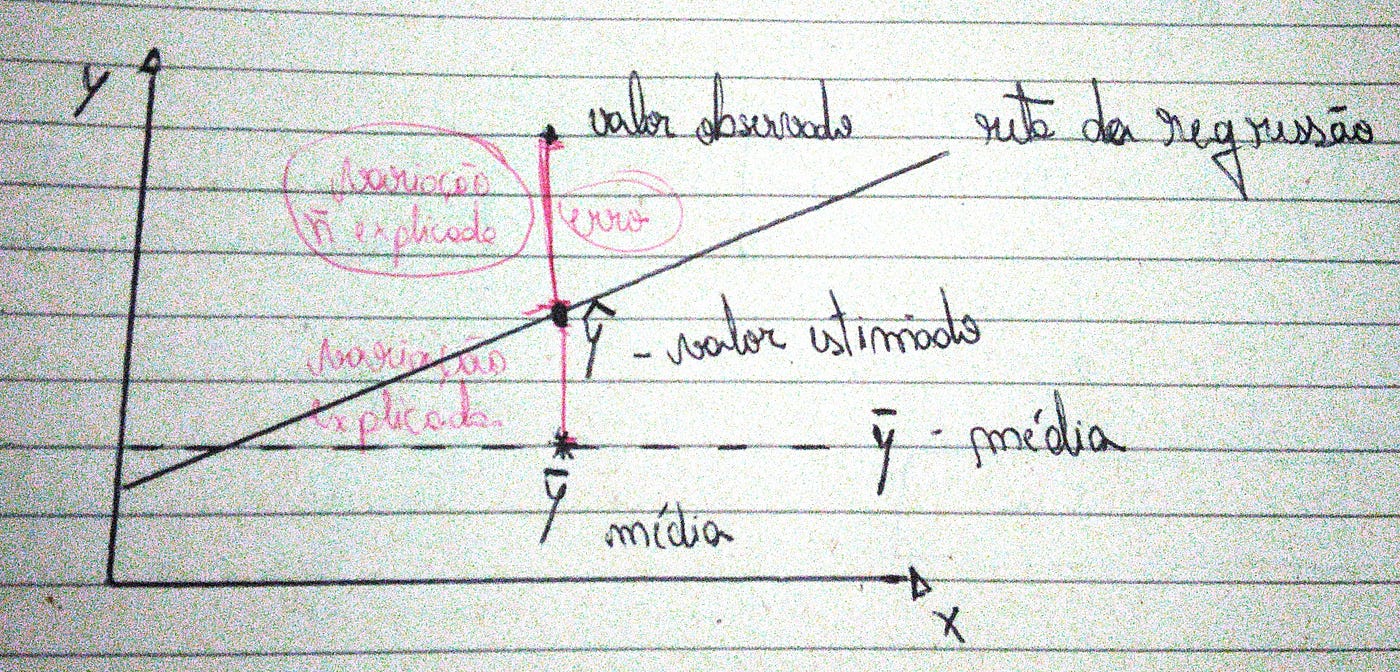 y
valor observado
reta da regressão
variação
ñ explicada
erro
ŷ - valor estimado
variação
explicada
ȳ - média
ȳ
média
x